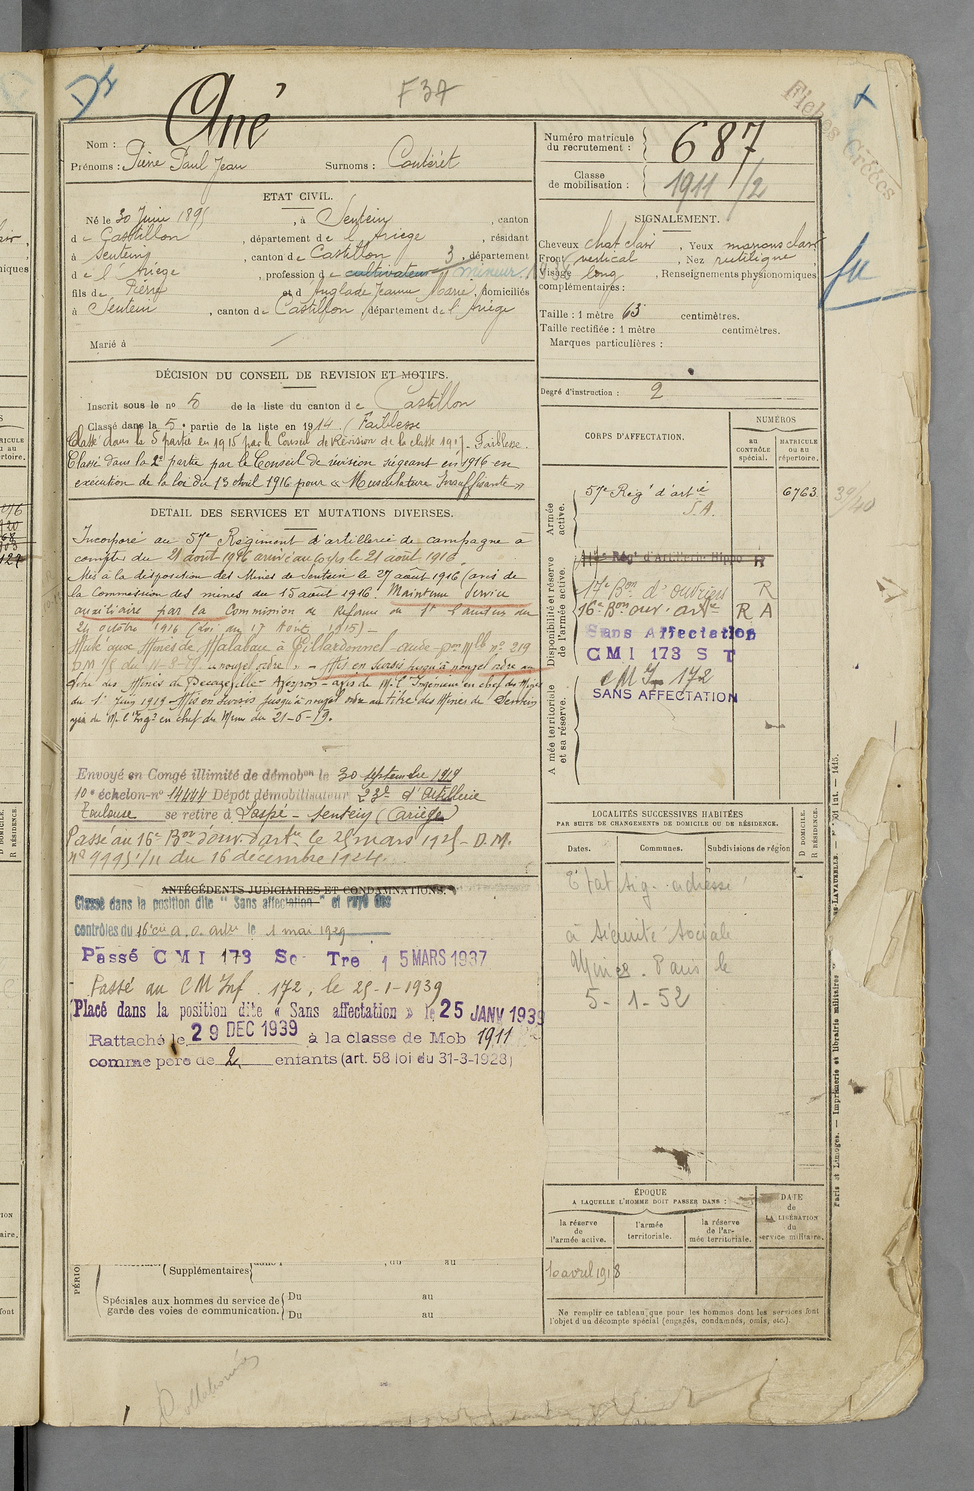 F 37
Fiches Créées
Nom : Ané
Prénoms : Pierre Paul Jean Surnoms : Coutéret
Numéro matricule du recrutement : 687
Classe de mobilisation : 1911 /2
ETAT CIVIL.
Né le 30 Juin 189 , à Sentein , canton
de Castillon , département de l'Ariège , résidant
à Sentein , canton de Castillon , département
de l'Ariège , profession de cultivateur mineur
fils de Pierre et d'Anglade Jeanne Marie , domiciliés
à Sentein , canton de Castillon , département de l'Ariège
Marié à
SIGNALEMENT.
Cheveux chat clair , Yeux marrons clair
Front vertical , Nez rectiligne
Visage long , Renseignements physionomiques
complémentaires :
Taille : 1 mètre 63 centimètres.
Taille rectifiée : 1 mètre centimètres.
Marques particulières :
Degré d'instruction : 2
DÉCISION DU CONSEIL DE REVISION ET MOTIFS.
Inscrit sous le no 5 de la liste du canton de Castillon
Classé dans la 5e partie de la liste en 1914. (Faiblesse
Classé dans la 5 partie en 1915 par le Conseil de Révision de la classe 1917. Faiblesse.
Classé dans la 2e partie par le Conseil de révision siégeant en 1916 en
exécution de la loi du 13 avril 1916 pour « Musculature Insuffisante »
DETAIL DES SERVICES ET MUTATIONS DIVERSES.
Incorporé au 57me Régiment d'artillerie de campagne à
compter du 21 août 1916 arrivé au corps le 21 août 1916
Mis à la disposition des Mines de Sentein le 27 août 1916 (avis de
la Commission des mines du 15 août 1916. Maintenu Service
auxiliaire par la Commission de Réforme de
24 octobre 1916 (Loi du 17 Août 1915) -
Muté aux Mines de Malabau à Villardonnel - aude - nº 219
D.M. /5 du 11-8- "nouvel ordre" - Mis en sursis jusqu'à nouvel ordre au
titre des Mines de Decazeville - Aveyron - avis de Mr l'Ingénieur en chef des Mines
du 1r Juin 1919 - Mis en sursis jusqu'à nouvel ordre au titre des Mines de Sentein
avis de Mr l'Ingr en chef des Mines du 21-6-19.
Envoyé en Congé illimité de démobon le 30 septembre 1919
10e échelon - no 14444 Dépôt démobilisateur 23e d'Artillerie
Toulouse se retire à Sentein (Ariège)
Passé au 16e Bon d'ouv. d'artie le 25 mars 1925 - D.M.
nº 9995 /11 du 16 décembre 1924.
ANTÉCÉDENTS JUDICIAIRES ET CONDAMNATIONS.
Classé dans la position dite " Sans affectation " et rayé des
contrôles du 16e à. o. artie le 1 mai 1929
Passé C M I 173 So Tre 1 5 MARS 1937
Passé au C M Inf. 172, le 25-1-1939
Placé dans la position dite « Sans affectation » le 25 JANV 1939
Rattaché le 29 DEC 1939 à la classe de Mob 1911
comme père de 2 enfants (art. 58 loi du 31-3-1928)
PÉRIO
Supplémentaires
Spéciales aux hommes du service de garde des voies de communication. Du au
Du au
CORPS D'AFFECTATION.
NUMÉROS
au CONTRÔLE spécial.
MATRICULE ou au répertoire.
Armée active.
57e Rég' d'artie
S.A.
6763
39/40
Disponibilité et réserve de l'armée active.
Rég' d'Artillerie Hippo R
17e Bon d'ouvriers R
16e Bon ouv. artie R A
Sans Affectation
CMI 173 S T
C M I 172
SANS AFFECTATION
Armée territoriale et sa réserve.
LOCALITÉS SUCCESSIVES HABITÉES
PAR SUITE DE CHANGEMENTS DE DOMICILE OU DE RÉSIDENCE.
Dates.
Communes.
Subdivisions de région
D DOMICILE.
R RÉSIDENCE.
Etat sig. adressé
à Sécurité Sociale
Minière. Paris le
5 - 1 - 52
ÉPOQUE
A LAQUELLE L'HOMME DOIT PASSER DANS :
la réserve de l'armée active.
l'armée territoriale.
la réserve de l'armée territoriale.
DATE DE LA LIBÉRATION du service militaire.
1o avril 1918
Ne remplir ce tableau que pour les hommes dont les services font
l'objet d'un décompte spécial (engagés, condamnés, omis, etc.).
Paris et Limoges. — Imprimerie et librairie militaires